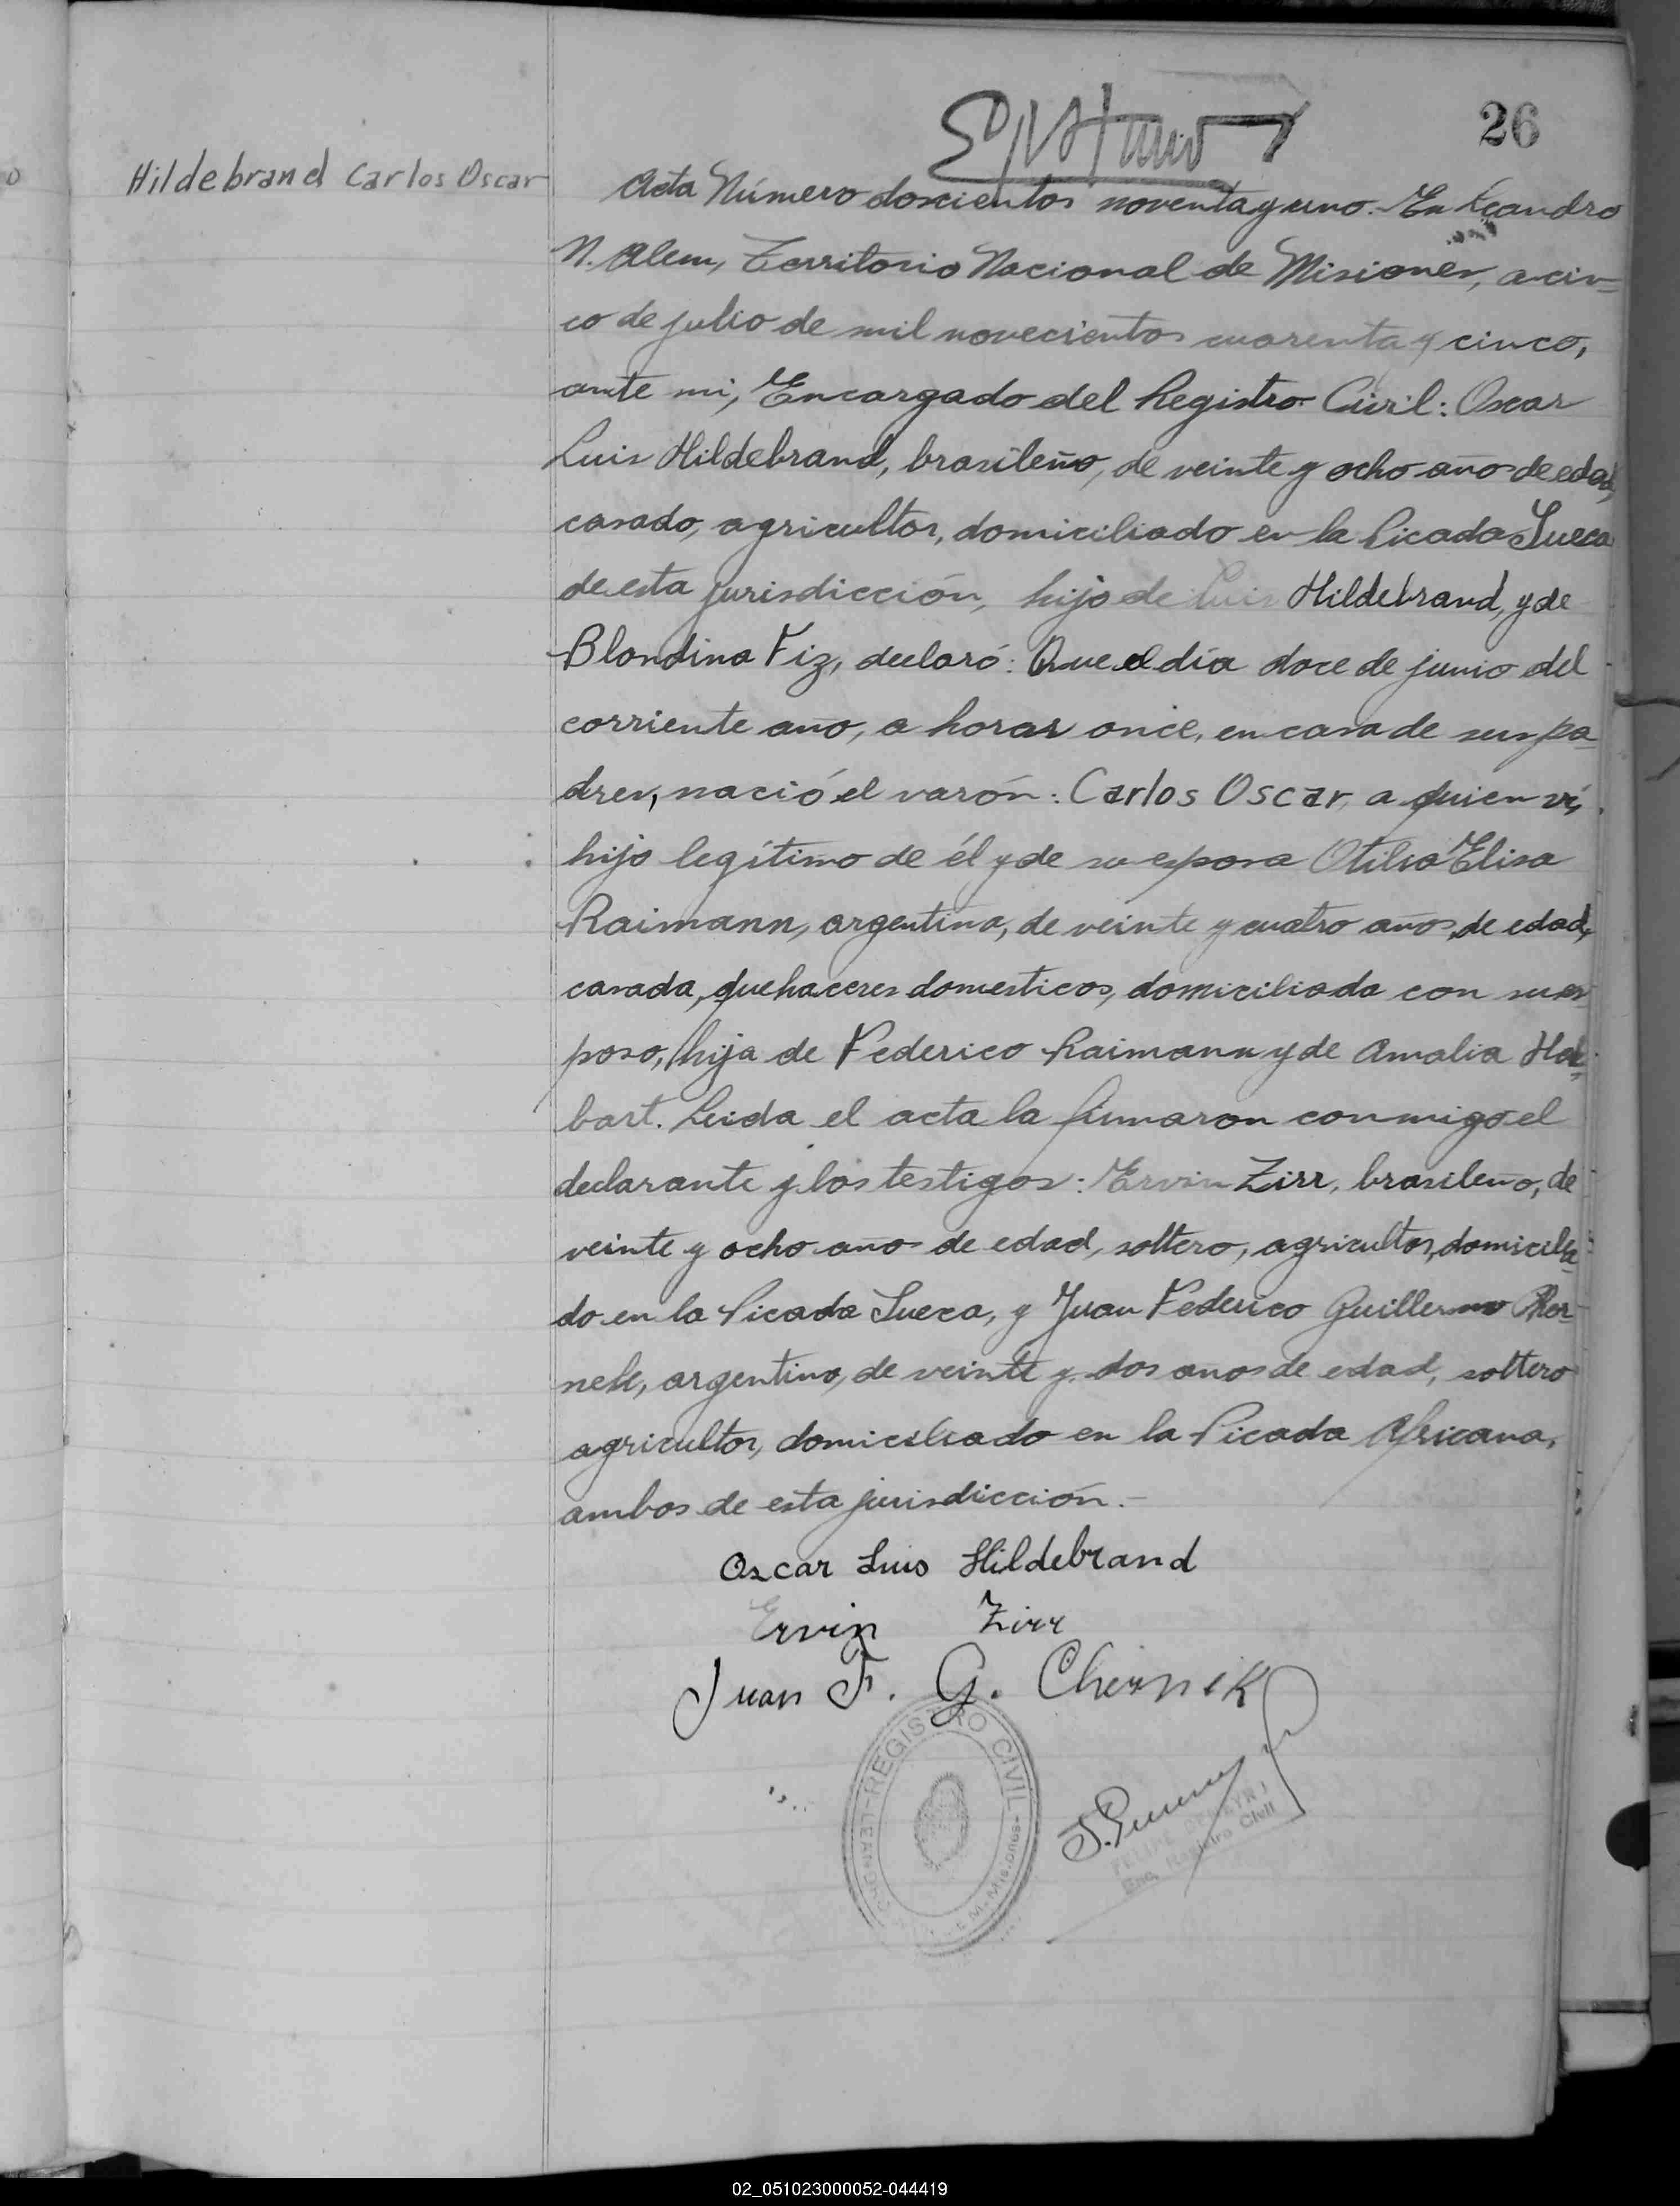 26
Hildebrand Carlos Oscar
Acta Número doscientos noventa y uno. En Leandro
N. Alem, Territorio Nacional de Misiones, a cin-
co de julio de mil novecientos cuarenta y cinco,
ante mi, Encargado del Registro Civil: Oscar
Luis Hildebrand, brasileño, de veinte y ocho año de edad,
casado, agricultor, domiciliado en la Picada Sueca
de esta jurisdicción, hijo de Luis Hildebrand, y de
Blondina Fiz, declaró: Que el día doce de junio del
corriente año, a horas once, en casa de sus pa-
dres, nació el varón: Carlos Oscar, a quien ví,
hijo legítimo de él y de su esposa Otilia Elisa
Raimann, argentina, de veinte y cuatro años de edad,
casada, quehaceres domesticos, domiciliada con su es-
poso, hija de Federico Raimann y de Amalia
bart. Leida el acta la firmaron conmigo el
declarante y los testigos: Ervin Zirr, brasileño, de
veinte y ocho año de edad, soltero, agricultor, domicilia-
do en la Picada Sueca, y Juan Federico Guillermo
argentino, de veinte y dos años de edad, soltero
agricultor, domiciliado en la Picada Africana,
ambos de esta jurisdicción.-
Oscar Luis Hildebrand
Ervin Zirr
Juan F. G. Chernik
REGISTRO CIVIL
LEANDRO
Misiones
FELIPE
Enc. Registro Civil
02_051023000052-044419